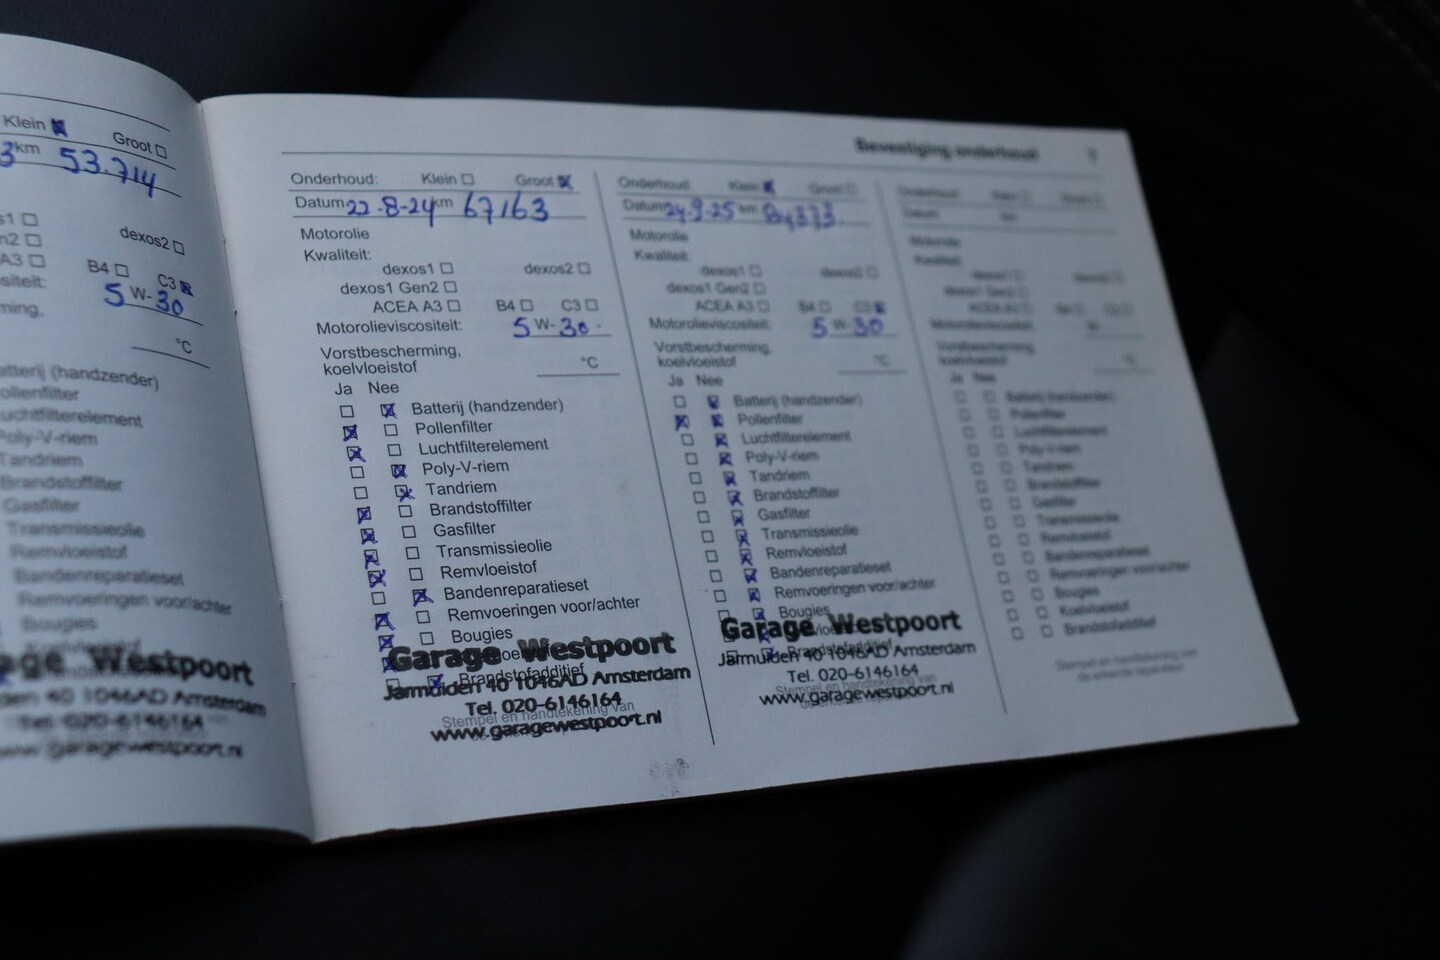 Klein Groot
3 km 53.714
dexos2
A3 B4 C3
5 W- 30
°C
Batterij (handzender)
Pollenfilter
Luchtfilterelement
Poly-V-riem
Tandriem
Brandstoffilter
Gasfilter
Transmissieolie
Remvloeistof
Bandenreparatieset
Remvoeringen voor/achter
Bougies
Westpoort
40 1046AD Amsterdam
Tel. 020-6146164
www.garagewestpoort.nl
Bevestiging onderhoud 7
Onderhoud: Klein Groot
Datum 22-8-24 km 67163
Motorolie
Kwaliteit:
dexos1 dexos2
dexos1 Gen2
ACEA A3 B4 C3
Motorolieviscositeit: 5 W- 30
Vorstbescherming,
koelvloeistof °C
Ja Nee
Batterij (handzender)
Pollenfilter
Luchtfilterelement
Poly-V-riem
Tandriem
Brandstoffilter
Gasfilter
Transmissieolie
Remvloeistof
Bandenreparatieset
Remvoeringen voor/achter
Bougies
Brandstofadditief
Stempel en handtekening van
Garage Westpoort
Jarmuiden 40 1046AD Amsterdam
Tel. 020-6146164
www.garagewestpoort.nl
Onderhoud: Klein Groot
Datum 24-9-25 km 84373
Motorolie
Kwaliteit:
dexos1 dexos2
dexos1 Gen2
ACEA A3 B4 C3
Motorolieviscositeit: 5 W- 30
Vorstbescherming,
koelvloeistof °C
Ja Nee
Batterij (handzender)
Pollenfilter
Luchtfilterelement
Poly-V-riem
Tandriem
Brandstoffilter
Gasfilter
Transmissieolie
Remvloeistof
Bandenreparatieset
Remvoeringen voor/achter
Bougies
Brandstofadditief
Stempel en handtekening van
Garage Westpoort
Jarmuiden 40 1046AD Amsterdam
Tel. 020-6146164
www.garagewestpoort.nl
Onderhoud: Klein Groot
Datum km
Motorolie
Kwaliteit:
dexos1 dexos2
dexos1 Gen2
ACEA A3 B4 C3
Motorolieviscositeit: W-
Vorstbescherming,
koelvloeistof °C
Ja Nee
Batterij (handzender)
Pollenfilter
Luchtfilterelement
Poly-V-riem
Tandriem
Brandstoffilter
Gasfilter
Transmissieolie
Remvloeistof
Bandenreparatieset
Remvoeringen voor/achter
Bougies
Koelvloeistof
Brandstofadditief
Stempel en handtekening van
de erkende reparateur